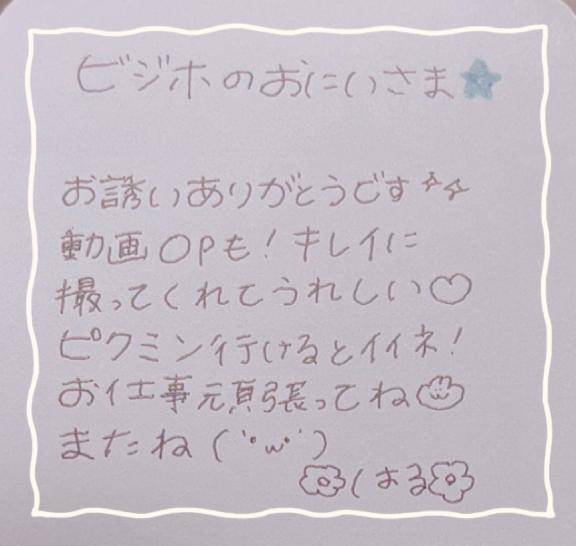 ビジホのおにいさま
お誘いありがとうです
動画OPも！キレイに
撮ってくれてうれしい♡
ピクミン行けるとイイネ！
お仕事頑張ってね
またね(´•ω•`)
はる